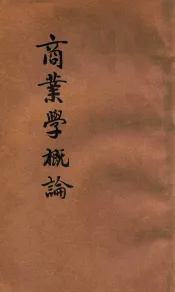 商業學概論